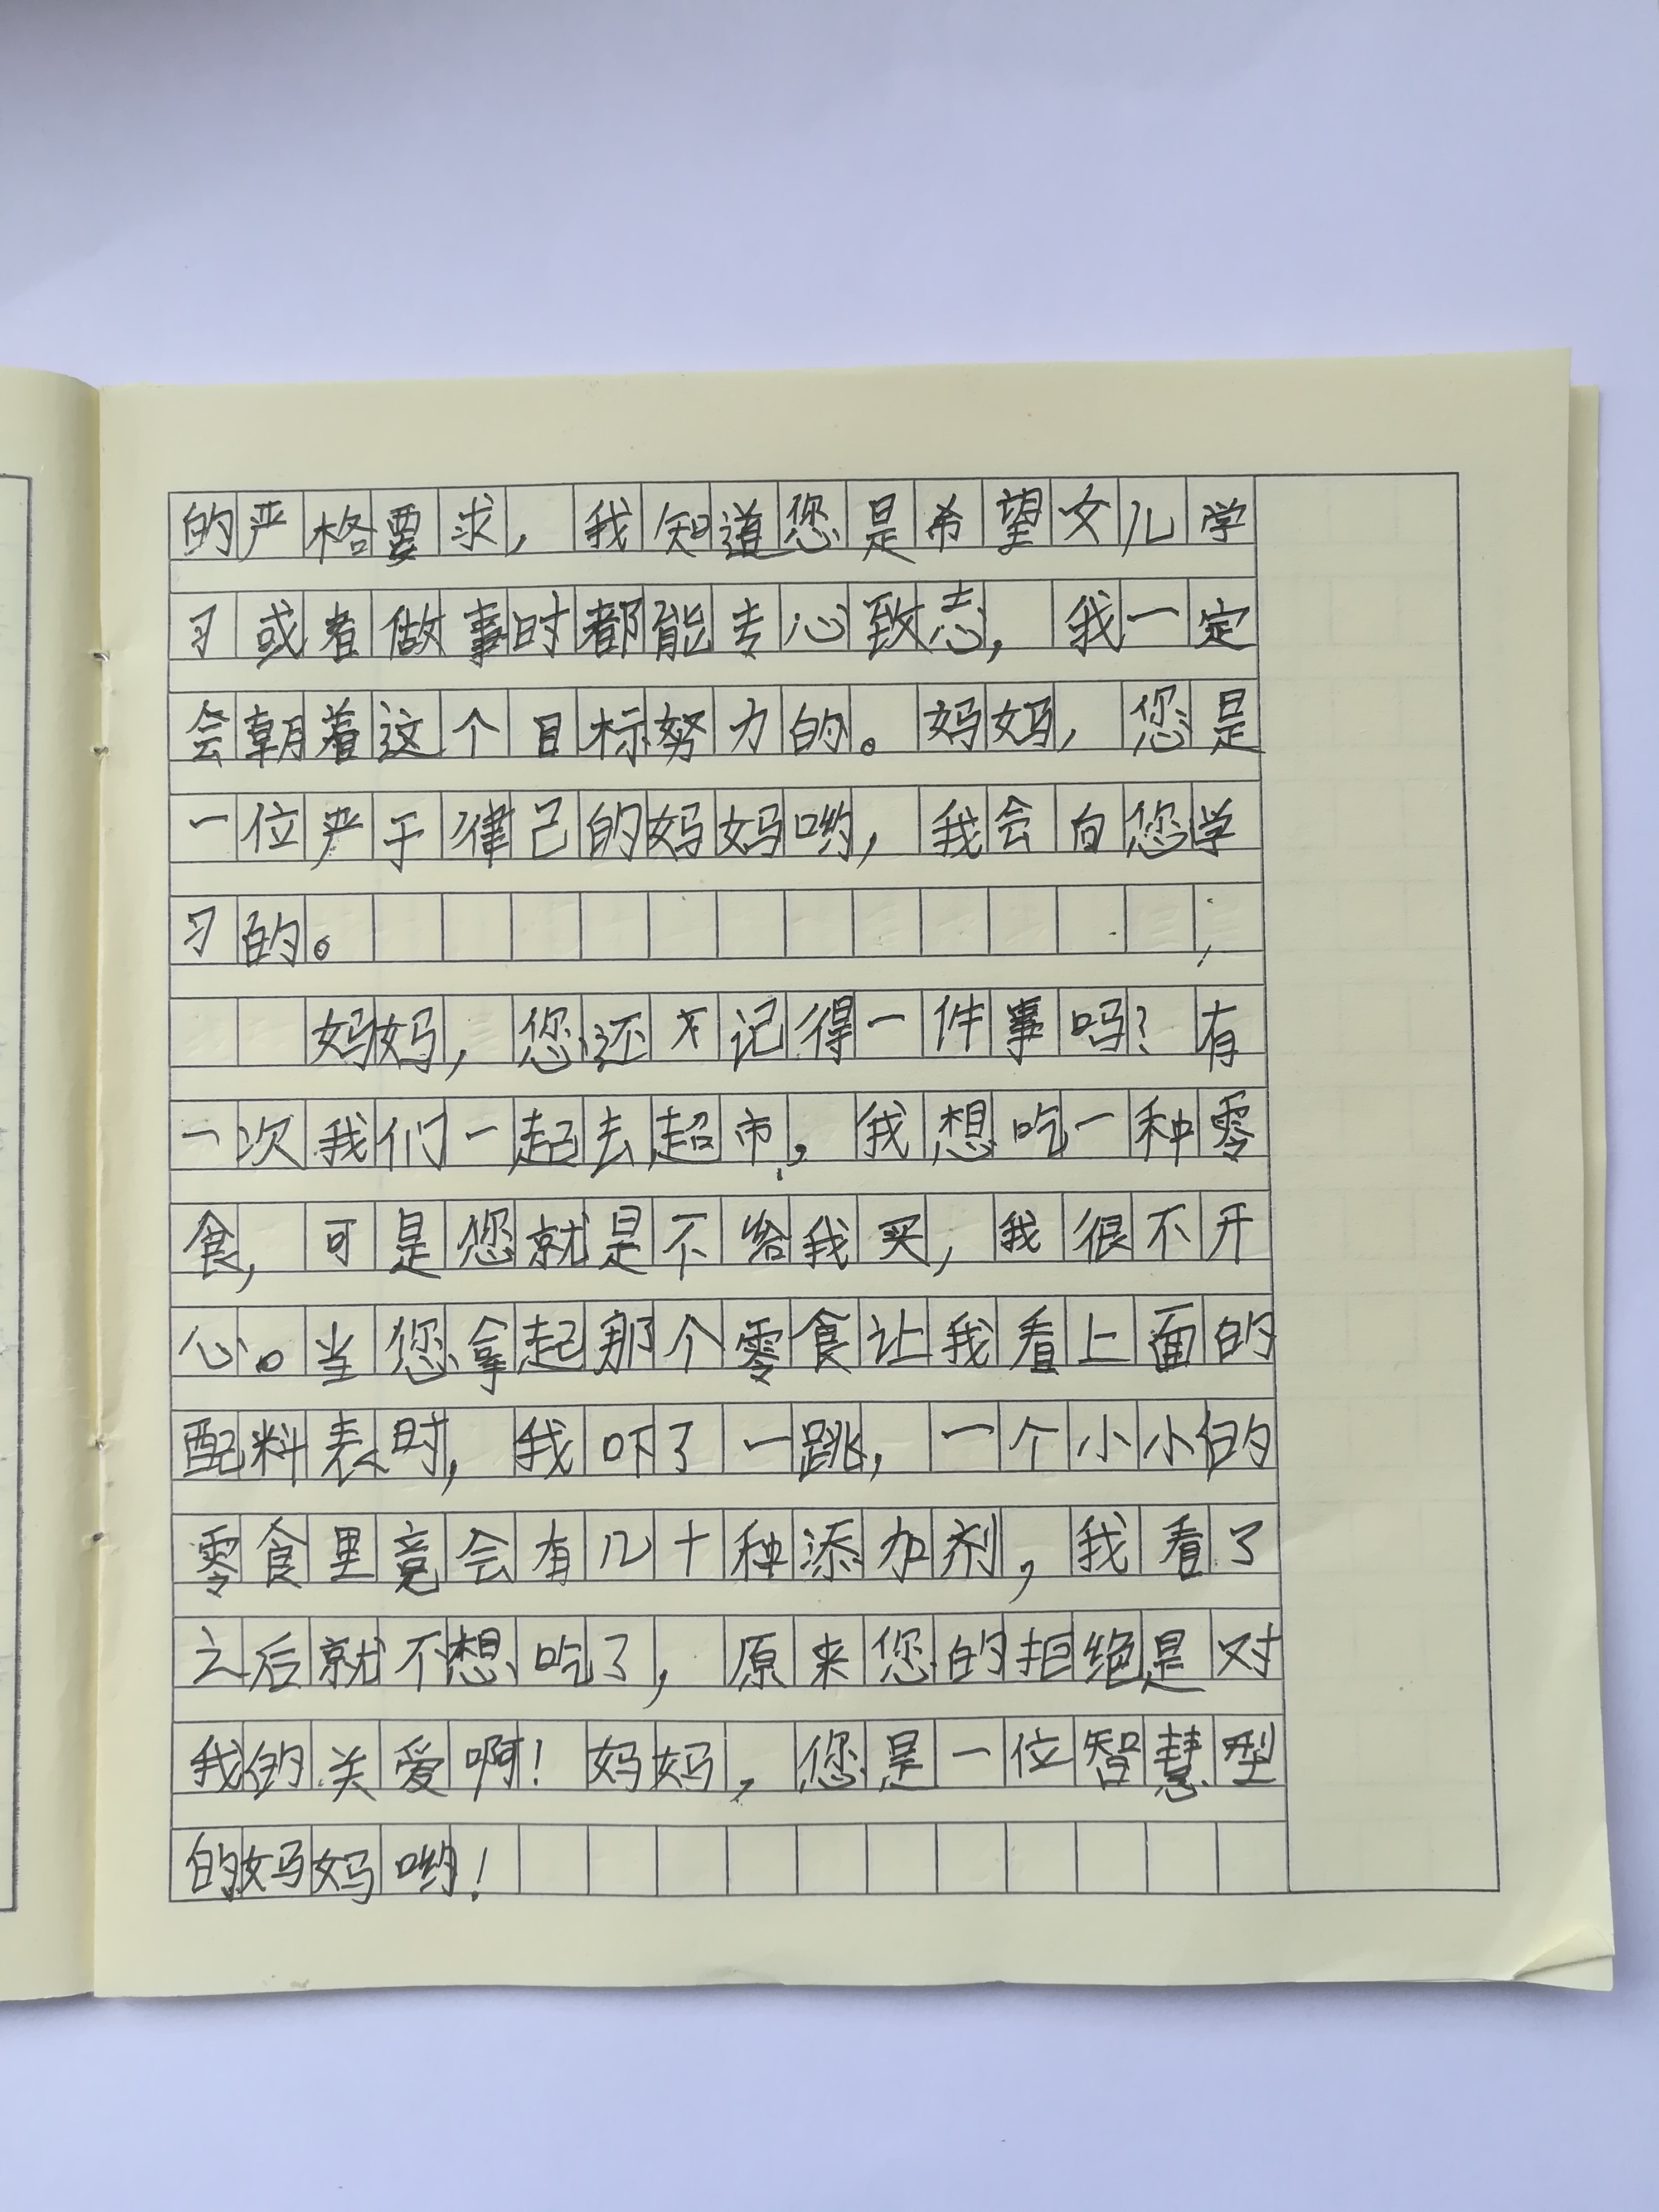 的严格要求，我知道您是希望女儿学
习或者做事时都能专心致志，我一定
会朝着这个目标努力的。妈妈，您是
一位严于律己的妈妈哟，我会向您学
习的。
妈妈，您还不记得一件事吗？有
一次我们一起去超市，我想吃一种零
食，可是您就是不给我买，我很不开
心。当您拿起那个零食让我看上面的
配料表时，我吓了一跳，一个小小的
零食里竟会有几十种添加剂，我看了
之后就不想吃了，原来您的拒绝是对
我的关爱啊！妈妈，您是一位智慧型
的妈妈哟！